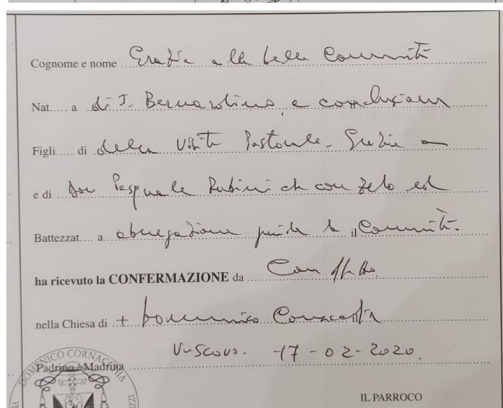 Cognome e nome Grazie alla bella Comunità
Nat..... a di S. Bernardino, a conclusione
Figli..... di della Visita Pastorale. Grazie a
e di don Pasquale Rubini che con zelo ed
Battezzat.... a abnegazione guida la il Comunità.
ha ricevuto la CONFERMAZIONE da Con affetto
nella Chiesa di + Domenico Cornacchia
Vescovo. -17-02-2020.
Padrino / Madrina
DOMENICO CORNACCHIA
IL PARROCO